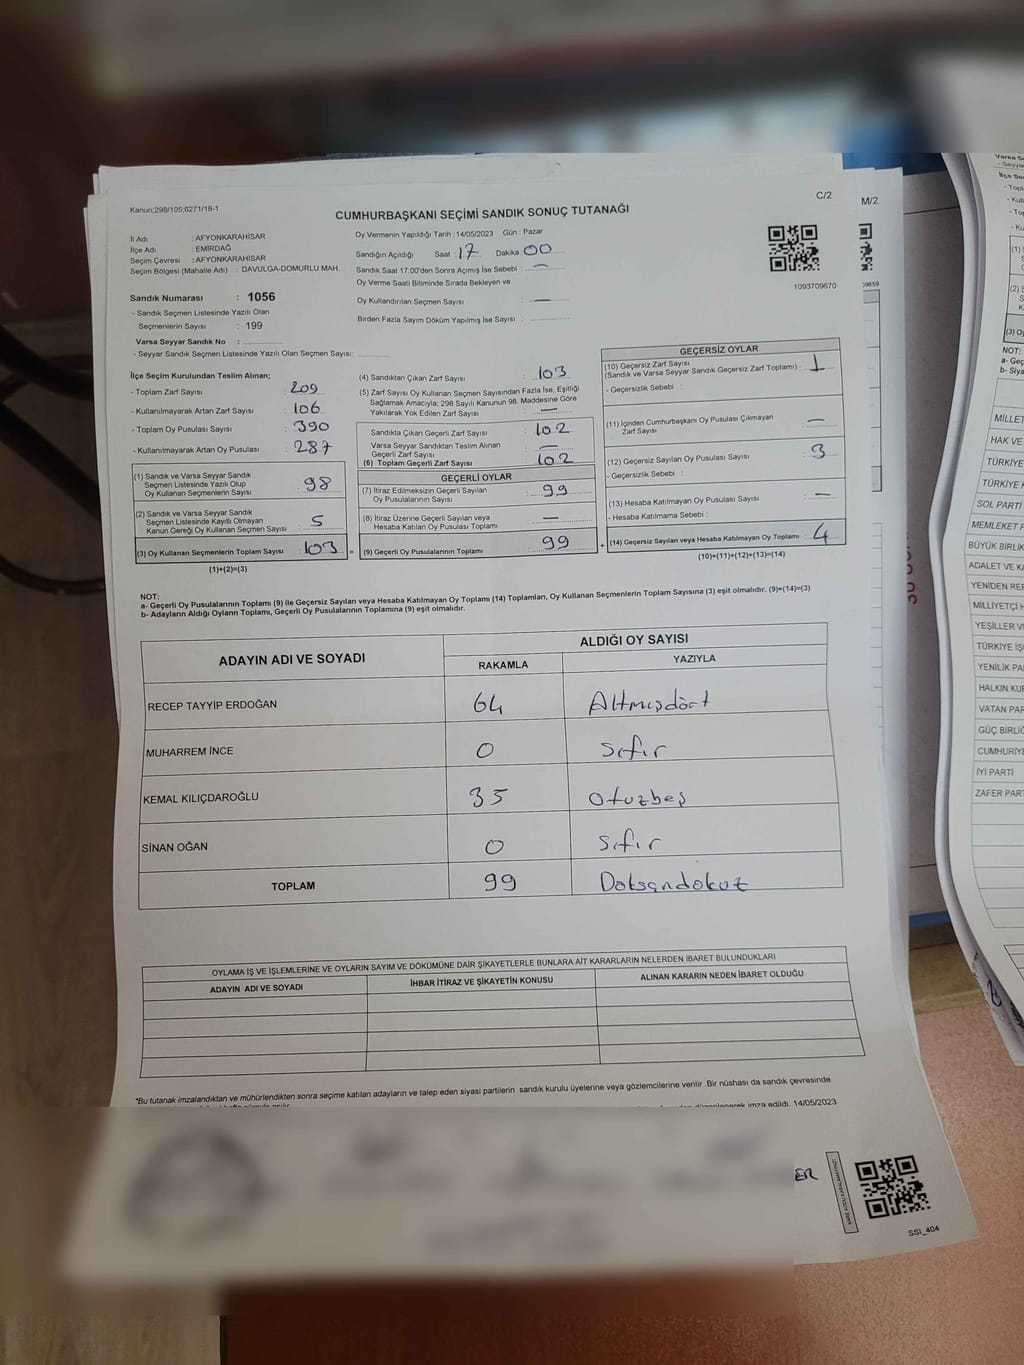 Kanun;298/105;6271/18-1
C/2
M/2
CUMHURBAŞKANI SEÇİMİ SANDIK SONUÇ TUTANAĞI
İl Adı : AFYONKARAHİSAR
İlçe Adı : EMİRDAĞ
Seçim Çevresi : AFYONKARAHİSAR
Seçim Bölgesi (Mahalle Adı) : DAVULGA-DOMURLU MAH.
Oy Vermenin Yapıldığı Tarih : 14/05/2023 Gün : Pazar
Sandığın Açıldığı Saat : 17 Dakika 00
Sandık Saat 17.00'den Sonra Açımış İse Sebebi : —
Oy Verme Saati Bitiminde Sırada Bekleyen ve
Oy Kullandırılan Seçmen Sayısı : —
Birden Fazla Sayım Döküm Yapılmış İse Sayısı :
1093709670
Sandık Numarası : 1056
- Sandık Seçmen Listesinde Yazılı Olan
Seçmenlerin Sayısı : 199
Varsa Seyyar Sandık No :
- Seyyar Sandık Seçmen Listesinde Yazılı Olan Seçmen Sayısı:
İlçe Seçim Kurulundan Teslim Alınan;
- Toplam Zarf Sayısı : 209
- Kullanılmayarak Artan Zarf Sayısı : 106
- Toplam Oy Pusulası Sayısı : 390
- Kullanılmayarak Artan Oy Pusulası : 287
(1) Sandık ve Varsa Seyyar Sandık
Seçmen Listesinde Yazılı Olup
Oy Kullanan Seçmenlerin Sayısı : 98
(2) Sandık ve Varsa Seyyar Sandık
Seçmen Listesinde Kayıtlı Olmayan
Kanun Gereği Oy Kullanan Seçmen Sayısı : 5
(3) Oy Kullanan Seçmenlerin Toplam Sayısı : 103
(1)+(2)=(3)
(4) Sandıktan Çıkan Zarf Sayısı : 103
(5) Zarf Sayısı Oy Kullanan Seçmen Sayısından Fazla İse, Eşitliği
Sağlamak Amacıyla; 298 Sayılı Kanunun 98. Maddesine Göre
Yakılarak Yok Edilen Zarf Sayısı : —
Sandıkta Çıkan Geçerli Zarf Sayısı : 102
Varsa Seyyar Sandıktan Teslim Alınan
Geçerli Zarf Sayısı : —
(6) Toplam Geçerli Zarf Sayısı : 102
GEÇERLİ OYLAR
(7) İtiraz Edilmeksizin Geçerli Sayılan
Oy Pusulalarının Sayısı : 99
(8) İtiraz Üzerine Geçerli Sayılan veya
Hesaba Katılan Oy Pusulası Toplamı : —
= (9) Geçerli Oy Pusulalarının Toplamı : 99
GEÇERSİZ OYLAR
(10) Geçersiz Zarf Sayısı
(Sandık ve Varsa Seyyar Sandık Geçersiz Zarf Toplamı) : 1
- Geçersizlik Sebebi :
(11) İçinden Cumhurbaşkanı Oy Pusulası Çıkmayan
Zarf Sayısı : —
(12) Geçersiz Sayılan Oy Pusulası Sayısı : 3
- Geçersizlik Sebebi :
(13) Hesaba Katılmayan Oy Pusulası Sayısı : —
- Hesaba Katılmama Sebebi :
+ (14) Geçersiz Sayılan veya Hesaba Katılmayan Oy Toplamı : 4
(10)+(11)+(12)+(13)=(14)
NOT:
a- Geçerli Oy Pusulalarının Toplamı (9) ile Geçersiz Sayılan veya Hesaba Katılmayan Oy Toplamı (14) Toplamları, Oy Kullanan Seçmenlerin Toplam Sayısına (3) eşit olmalıdır. (9)+(14)=(3)
b- Adayların Aldığı Oyların Toplamı, Geçerli Oy Pusulalarının Toplamına (9) eşit olmalıdır.
ADAYIN ADI VE SOYADI
ALDIĞI OY SAYISI
RAKAMLA YAZIYLA
RECEP TAYYİP ERDOĞAN 64 Altmışdört
MUHARREM İNCE 0 Sıfır
KEMAL KILIÇDAROĞLU 35 Otuzbeş
SİNAN OĞAN 0 Sıfır
TOPLAM 99 Doksandokuz
OYLAMA İŞ VE İŞLEMLERİNE VE OYLARIN SAYIM VE DÖKÜMÜNE DAİR ŞİKAYETLERLE BUNLARA AİT KARARLARIN NELERDEN İBARET BULUNDUKLARI
ADAYIN ADI VE SOYADI İHBAR İTİRAZ VE ŞİKAYETİN KONUSU ALINAN KARARIN NEDEN İBARET OLDUĞU
*Bu tutanak imzalandıktan ve mühürlendikten sonra seçime katılan adayların ve talep eden siyasi partilerin sandık kurulu üyelerine veya gözlemcilerine verilir .Bir nüshası da sandık çevresinde
imza edildi. 14/05/2023
SSI_404
NOT:
MİLLET
HAK VE
TÜRKİYE
TÜRKİYE
SOL PARTİ
MEMLEKET
BÜYÜK BİRLİK
ADALET VE
YENİDEN
MİLLİYETÇİ
YEŞİLLER
TÜRKİYE
YENİLİK
HALKIN
VATAN
GÜÇ BİRLİĞİ
CUMHURİYE
İYİ PARTİ
ZAFER PART